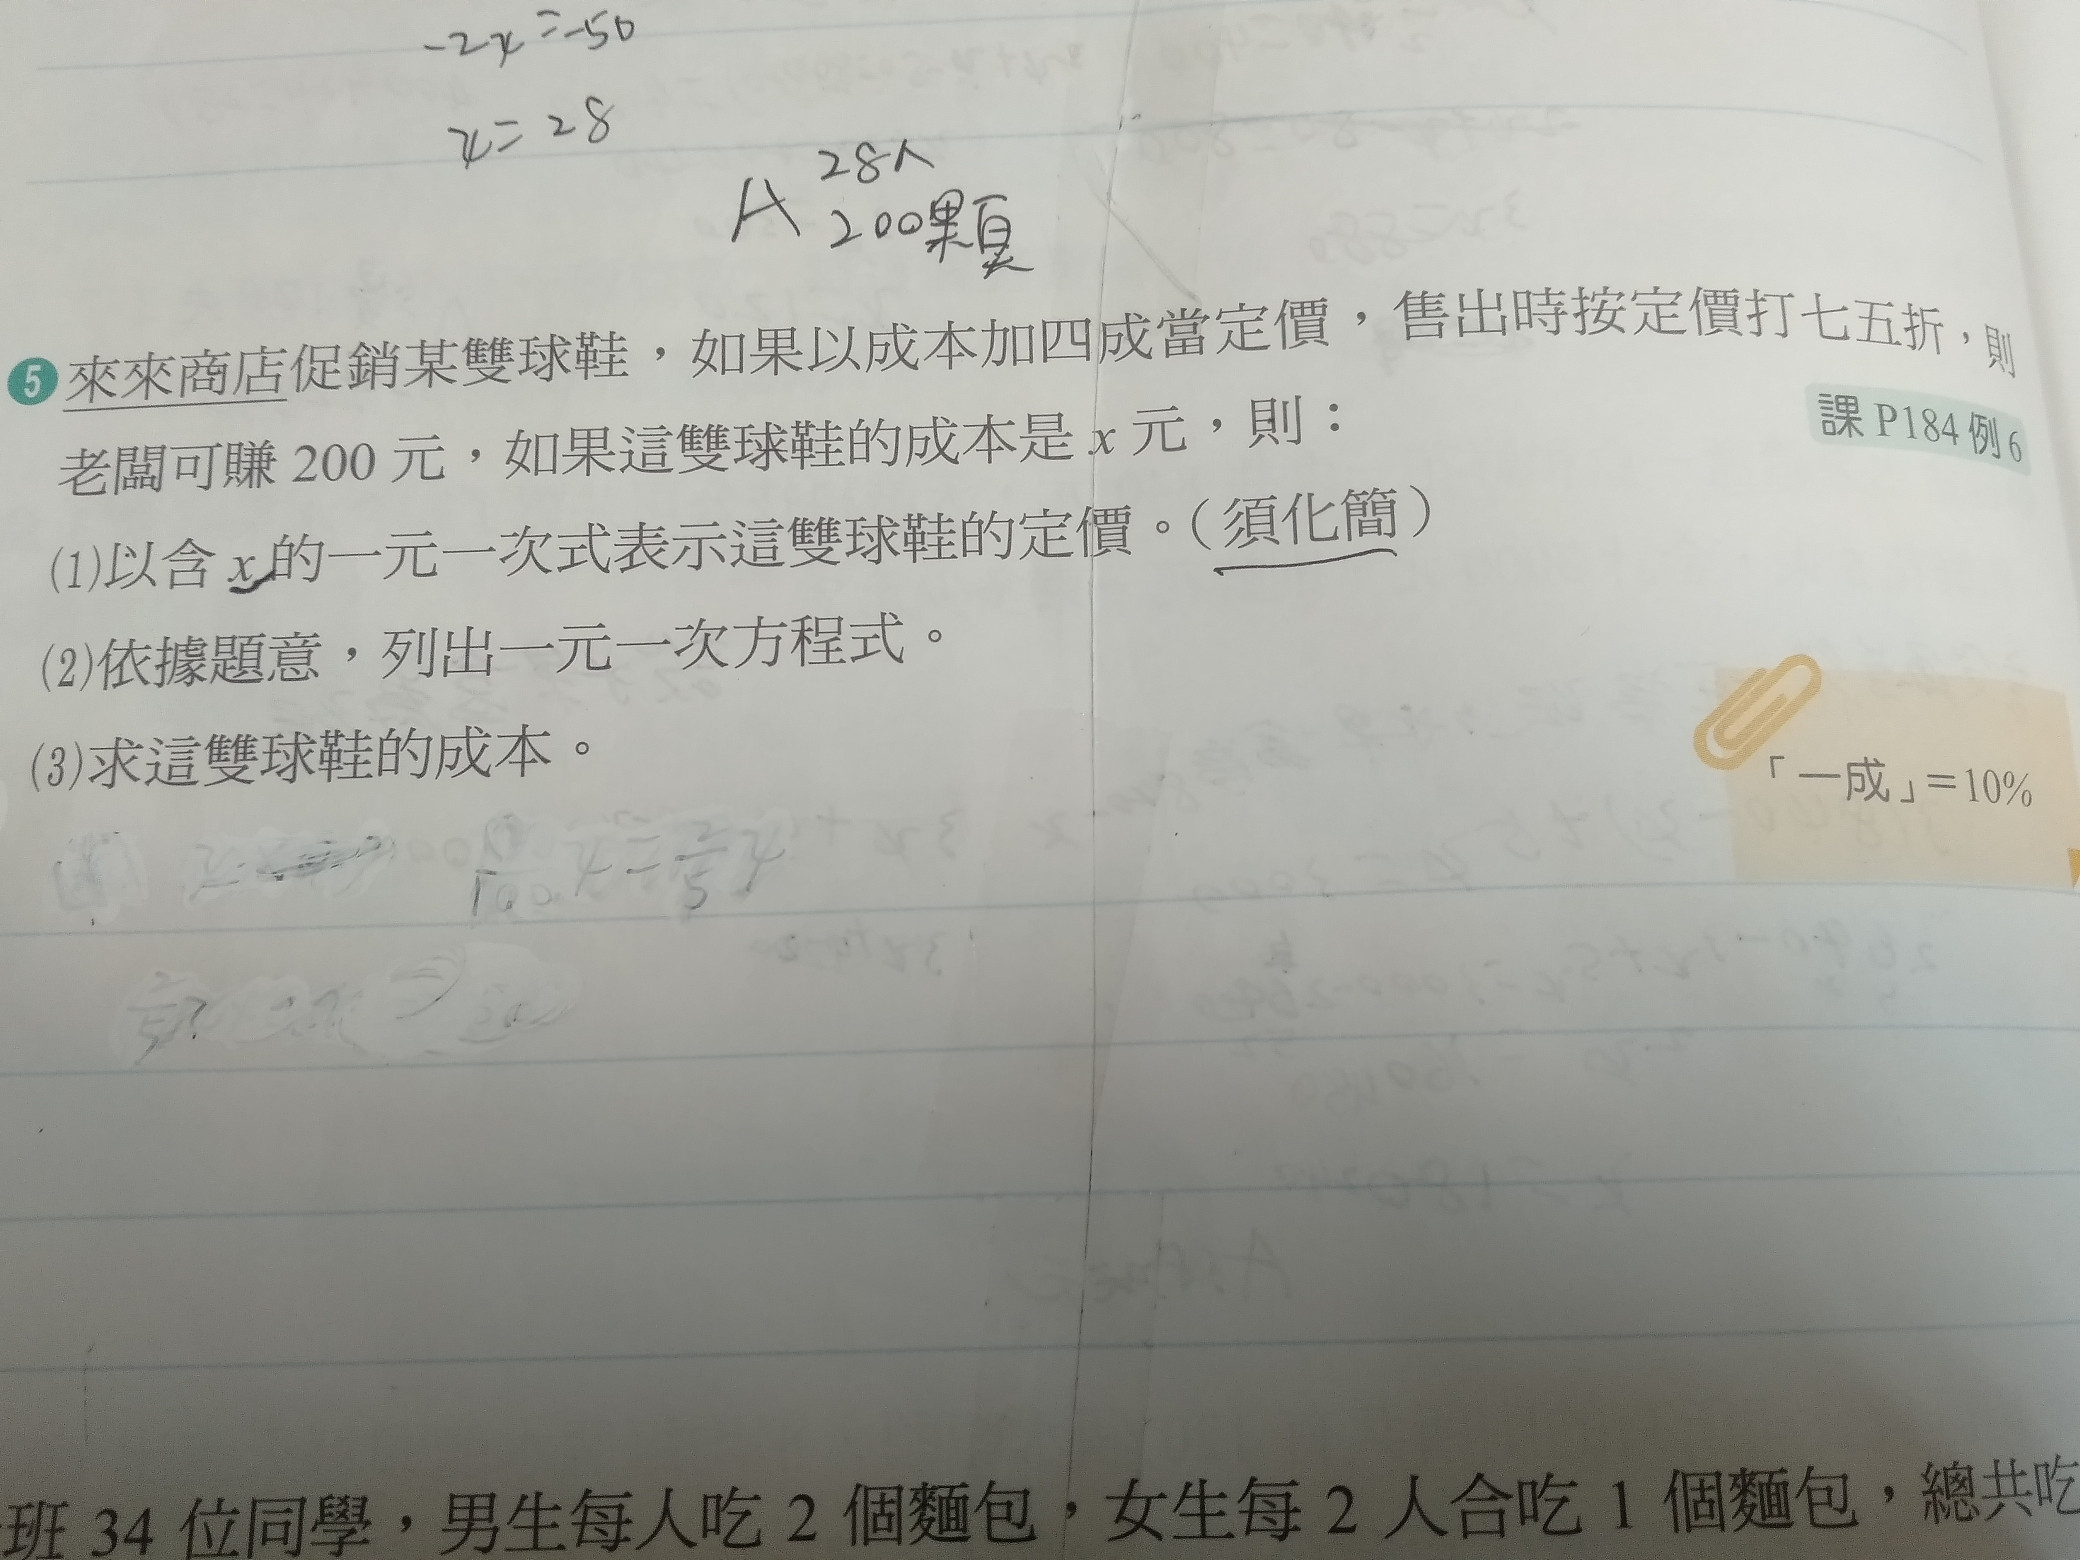 -2x=-50
x=28
A 28人
200果頁
5 來來商店促銷某雙球鞋，如果以成本加四成當定價，售出時按定價打七五折，則
老闆可賺 200 元，如果這雙球鞋的成本是 x 元，則：
課 P184 例 6
(1)以含 x 的一元一次式表示這雙球鞋的定價。（須化簡）
(2)依據題意，列出一元一次方程式。
(3)求這雙球鞋的成本。
「一成」=10%
班 34 位同學，男生每人吃 2 個麵包，女生每 2 人合吃 1 個麵包，總共吃